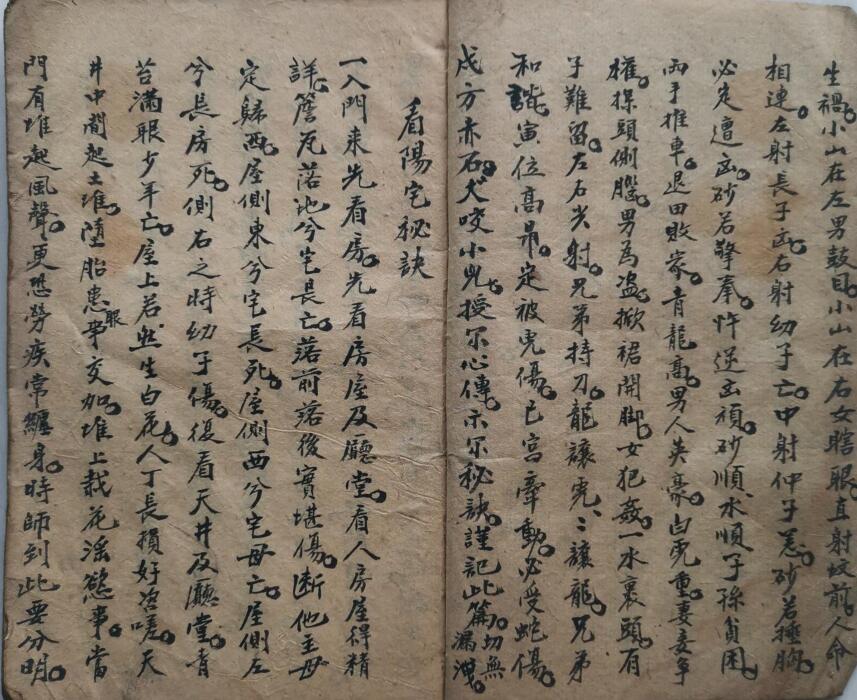 生禍。小山在左男鼓目。小山在右女瞎眼。直射坟前。人命
相連。左射長子凶。右射幼子亡。中射仲子恶。砂若搥胸。
必定遭凶。砂若擎拳。忤逆凶頑。砂順、水順子孫貧困。
両手推車。退田敗家。青龍高。男人英豪。白虎重。妻妾争
權。探頭側腦。男為盗。掀裙開脚。女犯姦。一水裹頭。有
子難留。左右尖射。兄弟持刀。龍讓虎、〻讓龍。兄弟
和諧。寅位高昂。定被虎傷。巳宫牽動。必受蛇傷。
戌方赤石。犬咬小兒。授尔心傳。示尔秘訣。謹記此篇。切無漏洩。
看陽宅秘訣
一入門来先看房。先看房屋及廳堂。看人房屋得精
詳。簷瓦落地兮宅長亡。落前落後實堪傷。断他主母
定歸西。屋側東兮宅長死。屋側西兮宅母亡。屋側左
兮長房死。側右之時幼子傷。復看天井及廳堂。青
苔滿眼少年亡。屋上若然生白花。人丁長損好咨嗟。天
井中間起土堆。墮胎患眼事交加。堆上栽花淫慾事。當
門有堆起風聲。更恐勞疾常纏身。時師到此要分明。